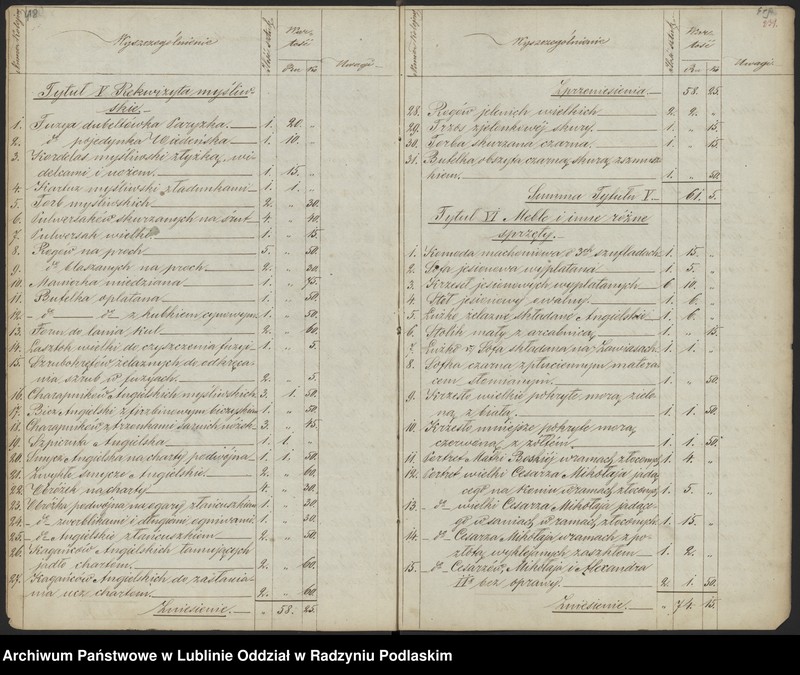 Numer Kolejny
Wyszczególnienie
Ilość sztuk
War-
tość
Rs. K.
Uwagi
Tytuł V Rekwizyta myśliw-
skie.
1. Fuzya dubeltówka Paryzka. 1. 20. „
2. dto pojedynka Wiedeńska 1. 10. „
3. Kordelas myśliwski z łyżką, wi-
delcami i nożem. 1. 15. „
4. myśliwski z ładunkami 1. 1. „
5. Torb myśliwskich 2. „ 30.
6. Pulwersaków skurzanych na śrut 4. „ 40.
7. Pulwersak wielki 1. „ 15.
8. Rogów na proch 5. „ 50.
9. dto blaszanych na proch. 2. „ 30.
10. Manierka miedziana 1. „ 75.
11. Butelka oplatana 1. „ 50
12. dto dto z kubkiem cynowym 1. „ 50.
13. Form do lania kul 2. „ 60.
14. wielki do czyszczenia fuzyi 1. „ 5.
15. Szrubokrętów żelaznych do odkręca-
nia szrub w fuzyach. 2. „ 5.
16. Charapników Angielskich myśliwskich 3. 1. 50.
17. Bicz Angielski z fiszbinowym biczyskiem 1. „ 50.
18. Charapników z trzonkami sarnich nóżek 3. „ 45.
19. Szpicruta Angielska 1. 1. „
20. Smycz Angielska na charty podwójna 1. 1. 50.
21. Zwykłe smycze Angielskie. 2. „ 60.
22. Obrożek na charty 4. „ 30.
23. Obróżka podwójna na ogary z łańcuszkiem 1. „ 30.
24. dto z wertlikami i długiemi ogniwami 1. „ 30.
25. dto Angielskie z łańcuszkiem 2. „ 50.
26. Kagańców Angielskich tamujących
jadło chartom. 2. „ 60.
27. Kagańców Angielskich do zasłania-
nia ócz chartom. 2. „ 60.
Zniesienie. „ 58. 25.
Numer Kolejny
Wyszczególnienie
Ilość sztuk
War-
tość
Rs. K.
Uwagi
239.
Z przeniesienia. 58. 25.
28. Rogów jelenich wielkich 2. 2. „
29. Trzos z jelonkowej skury. 1. „ 15.
30. Torba skurzana czarna. 1. „ 15.
31. Butelka obszyta czarną skurą z sznur-
kiem. 1. „ 50.
Summa Tytułu V. 61. 5.
Tytuł VI Meble i inne różne
sprzęty.
1. Komoda machoniowa o 3ch szufladach 1. 15. „
2. Sofa jesionowa wyplatana 1. 5. „
3. Krzeseł jesionowych wyplatanych 6. 10. „
4. Stół jesionowy owalny. 1. 6. „
5. Łóżko żelazne składane Angielskie 1. 6. „
6. Stolik mały z arcabnicą 1. „ 15.
7. Łóżko i Sofa składana na Zawiasach. 1. 1. „
8. Sofka czarna z płuciennym matera-
cem słomianym. 1. „ 50.
9. Krzesło wielkie pokryte morą zielo-
ną z białą. 1. 1. 50.
10. Krzesło mniejsze pokryte morą
czerwoną z żółtem 1. 1. 50.
11. Portret Matki Boskiej w ramach złoconych 1. 4. „
12. Portret wielki Cesarza Mikołaja jadą-
cego na koniu w ramach złoconych 1. 5. „
13. dto wielki Cesarza Mikołaja jadące-
go w saniach w ramach złoconych. 1. 15. „
14. dto Cesarza Mikołaja w ramach z po-
złotą wyklejonych za szkłem 1. 2. „
15. dto Cesarzów Mikołaja i Alexandra
IIo bez oprawy. 2. 1. 50.
Zniesienie. „ 74. 15.
Archiwum Państwowe w Lublinie Oddział w Radzyniu Podlaskim